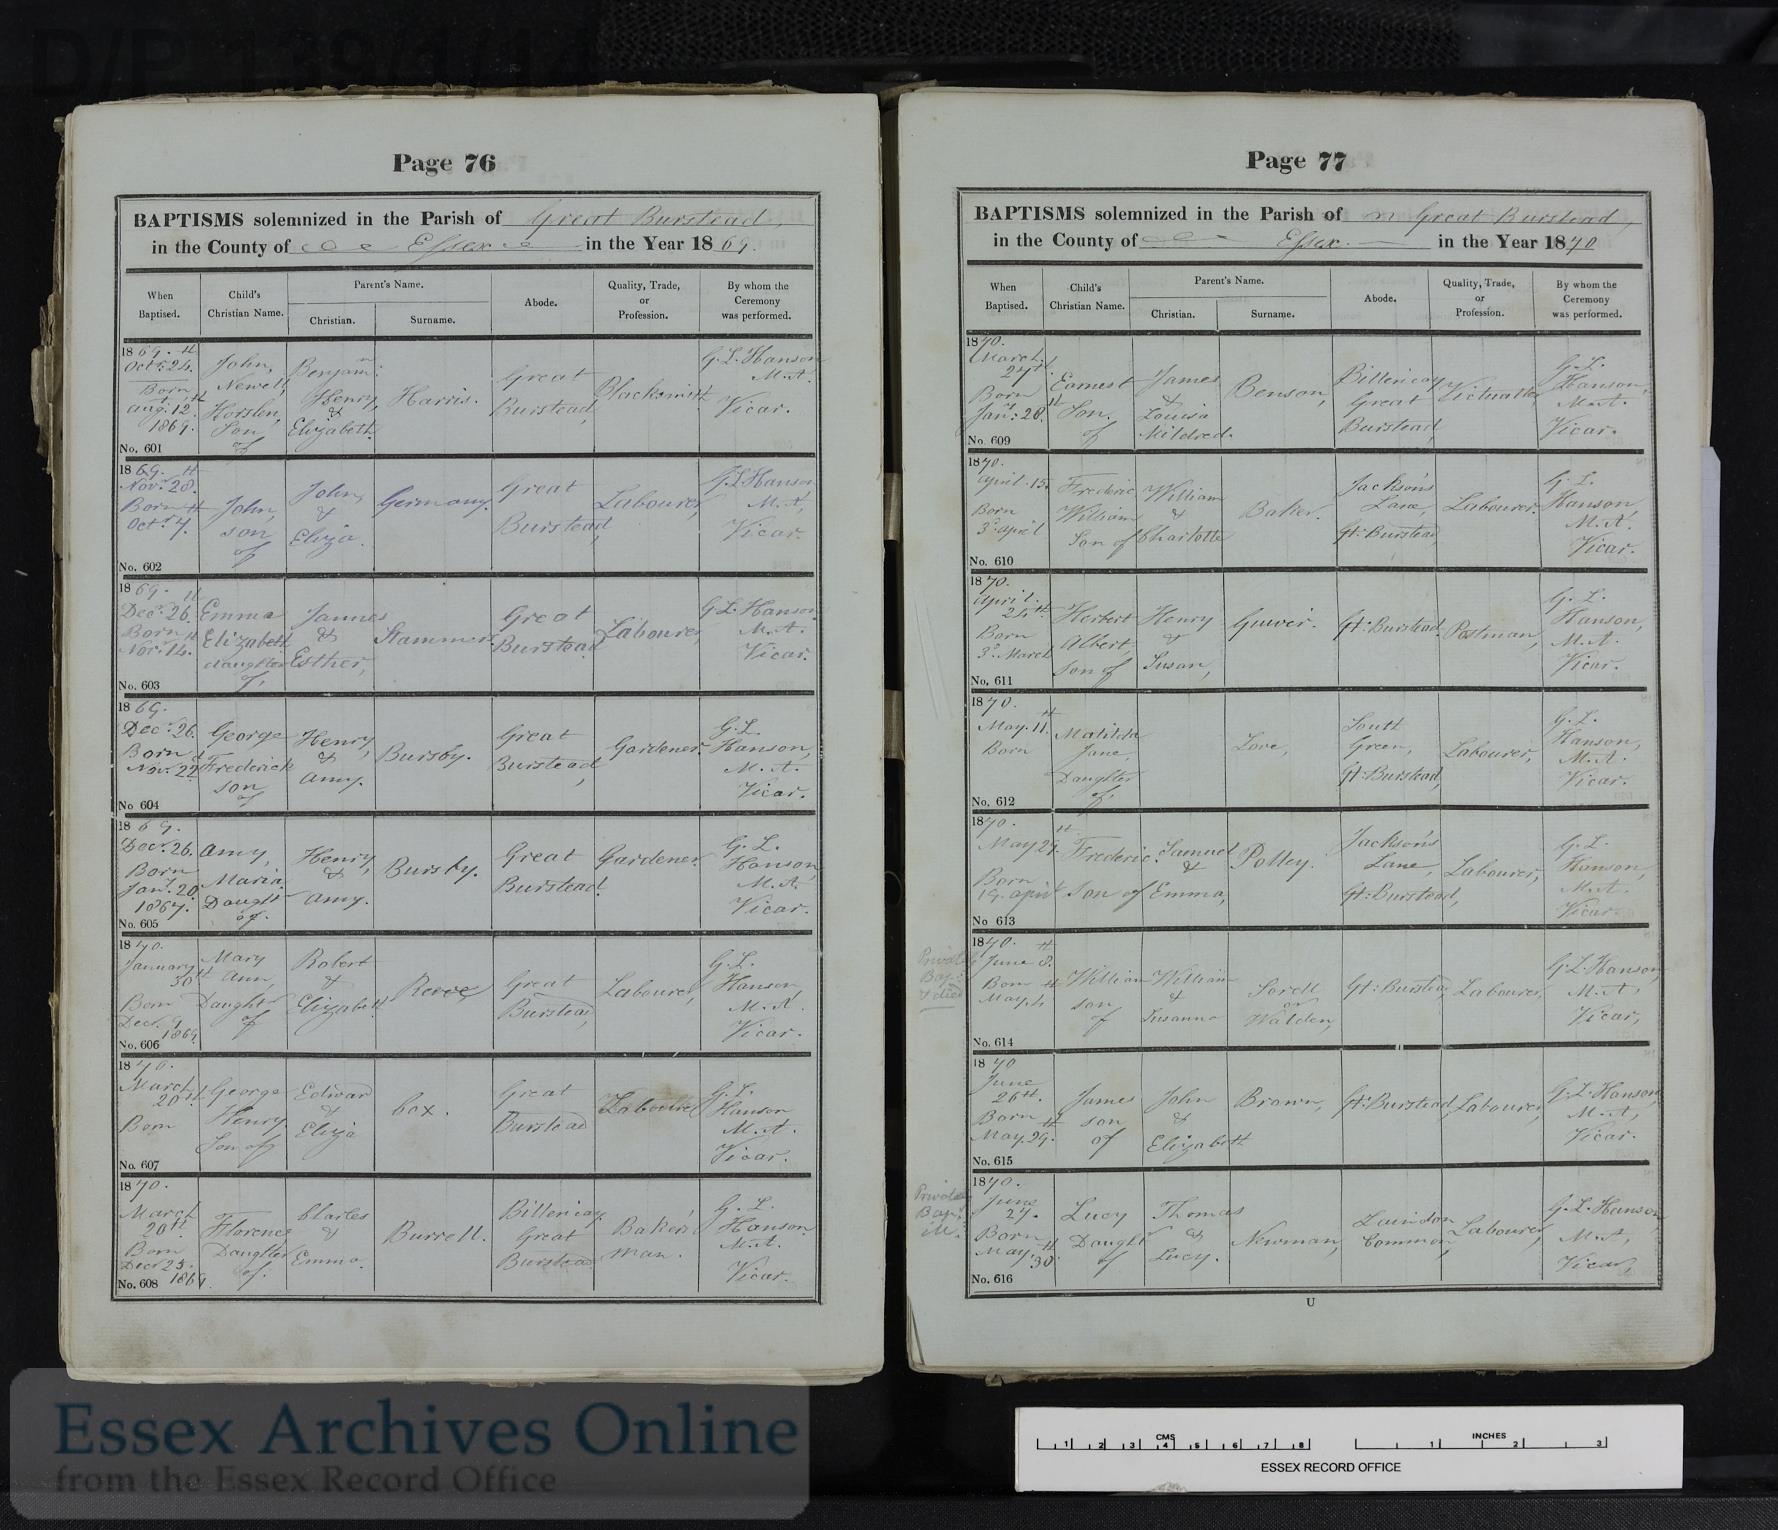 D/P 139/1/14
Page 76
BAPTISMS solemnized in the Parish of Great Burstead,
in the County of Essex in the Year 1869.
When Baptised.
Child's Christian Name.
Parent's Name.
Christian.
Surname.
Abode.
Quality, Trade, or Profession.
By whom the Ceremony was performed.
1869.
Octr. 24.
Born
Aug. 12th
1869.
No. 601
John,
Newell,
Horslen,
Son
of
Benjamn:
Henry,
&
Elizabeth.
Harris.
Great
Burstead,
Blacksmith
G. L. Hanson
M.A.
Vicar.
1869.
Novr. 28th
Born
Octr. 7th
No. 602
John,
son
of
John,
&
Eliza.
Germany.
Great
Burstead,
Labourer,
G L Hanson
M.A,
Vicar.
1869.
Decr. 26th
Born
Novr. 14th
No. 603
Emma
Elizabeth
daughter
of,
James
&
Esther,
Stammers.
Great
Burstead
Labourer,
G L Hanson.
M.A.
Vicar.
1869.
Decr. 26.
Born
Novr. 22d
No 604
George
Frederick
son
of
Henry,
&
Amy.
Bursby.
Great
Burstead,
Gardener.
G. L.
Hanson,
M.A.
Vicar.
1869.
Decr. 26.
Born
Jany. 20
1867.
No. 605
Amy,
Maria.
Daughtr
of.
Henry,
&
Amy.
Bursby.
Great
Burstead.
Gardener.
G. L.
Hanson,
M.A.
Vicar.
1870.
January
30th
Born
Decr. 9
1869.
No. 606
Mary
Ann,
Daughtr
of
Robert
&
Elizabeth
Reeve
Great
Burstead,
Labourer,
G. L.
Hanson,
M.A.
Vicar.
1870.
March
20th.
Born
No. 607
George
Henry
Son of
Edward
&
Eliza
Cox.
Great
Burstead
Labourer
G. L.
Hanson
M.A.
Vicar.
1870.
March
20th
Born
Decr 25.
1869.
No. 608
Florence
Daughter
of.
Charles
&
Emma.
Burrell.
Billericay.
Great
Burstead
Baker's
man.
G. L.
Hanson.
M.A.
Vicar.
Page 77
BAPTISMS solemnized in the Parish of Great Burstead,
in the County of Essex. in the Year 1870
When Baptised.
Child's Christian Name.
Parent's Name.
Christian.
Surname.
Abode.
Quality, Trade, or Profession.
By whom the Ceremony was performed.
1870.
March.
27th.
Born
Jany: 28th
No. 609
Earnest
Son.
of
James
&
Louisa
Mildred.
Benson,
Billericay
Great
Burstead,
Victualler,
G. L.
Hanson,
M.A.
Vicar.
1870.
April. 15.
Born
3d April
No. 610
Frederic
William
Son of
William
&
Charlotte
Baker.
Jackson's
Lane,
Gt: Burstead
Labourer.
G. L.
Hanson,
M.A.
Vicar.
1870.
April.
24th
Born
3d March
No. 611
Herbert
Albert,
son of
Henry
&
Susan,
Gt: Burstead.
Postman,
G. L.
Hanson,
M.A.
Vicar.
1870.
May. 11th
Born
No. 612
Matilda
Jane,
Daughter
of,
Love,
South
Green,
Gt: Burstead,
Labourer,
G. L.
Hanson,
M.A.
Vicar.
1870.
May 29th
Born
19. April
No 613
Frederic.
Son of
Samuel
&
Emma,
Polley.
Jackson's
Lane,
Gt: Burstead,
Labourer,
G. L.
Hanson,
M.A.
Vicar.
Privately
Bap:
& died
1870.
June 8th
Born
May. 4th
No. 614
William
son
of
William
&
Susanna
Sorell
or
Walden,
Gt: Burstead
Labourer,
G L Hanson,
M.A,
Vicar,
1870
June
26th.
Born
May. 29th.
No. 615
James
son
of
John
&
Elizabeth
Brown,
Gt: Burstead,
Labourer,
G. L. Hanson,
M.A,
Vicar.
Privately
Bap:
ill.
1870.
June
27.
Born
May. 30th
No. 616
Lucy
Daughtr
of
Thomas
&
Lucy.
Newman,
Laindon
Common,
Labourer,
G. L. Hanson,
M.A,
Vicar,
U
Essex Archives Online
from the Essex Record Office
CMS
1 2 3 4 5 6 7 8
INCHES
1 2 3
ESSEX RECORD OFFICE